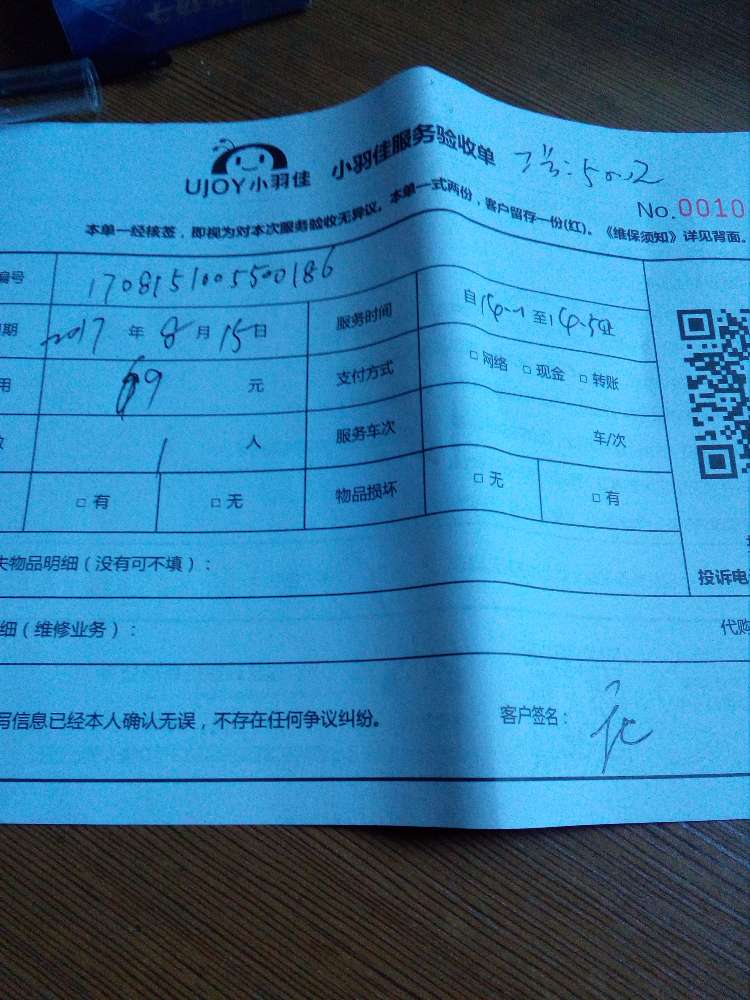 UJOY小羽佳 小羽佳服务验收单
No.0010
本单一经核签，即视为对本次服务验收无异议。本单一式两份，客户留存一份(红)。《维保须知》详见背面。
编号 1708151005500186
期 2017 年 8 月 15 日 服务时间 自 至
用 69 元 支付方式 □ 网络 □ 现金 □ 转账
1 人 服务车次 车/次
□ 有 □ 无 物品损坏 □ 无 □ 有
失物品明细（没有可不填）：
投诉电
细（维修业务）： 代购
写信息已经本人确认无误，不存在任何争议纠纷。 客户签名：